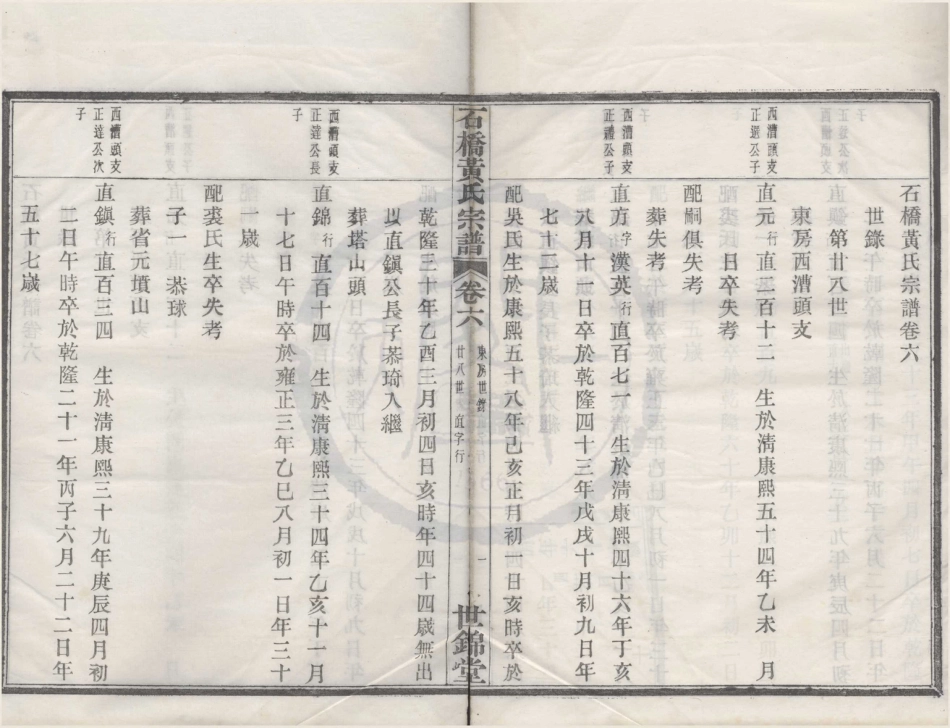 石橋黃氏宗譜卷六
世錄
第廿八世
東房西漕頭支
西漕頭支
正選公子
直元行直三百十二 生於淸康熙五十四年乙未 月
日卒失考
配嗣俱失考
葬失考
西漕頭支
正公子
直方字漢英行直百七一 生於淸康熙四十六年丁亥
八月十 日卒於乾隆四十三年戊戌十月初九日年
七十二歲
配吳氏生於康熙五十八年己亥正月初四日亥時卒於
石橋黃氏宗譜
卷六
東房世錄
廿八世 直字行
一
世錦堂
乾隆三十年乙酉三月初四日亥時年四十四歲無出
以直鎭公長子恭琦入繼
葬塔山頭
西漕頭支
正達公長
子
直錦行直百十四 生於淸康熙三十四年乙亥十一月
十七日午時卒於雍正三年乙巳八月初一日年三十
一歲
配裘氏生卒失考
子一 恭球
葬省元墳山
西漕頭支
正達公次
子
直鎭行直百三四 生於淸康熙三十九年庚辰四月初
二日午時卒於乾隆二十一年丙子六月二十二日年
五十七歲